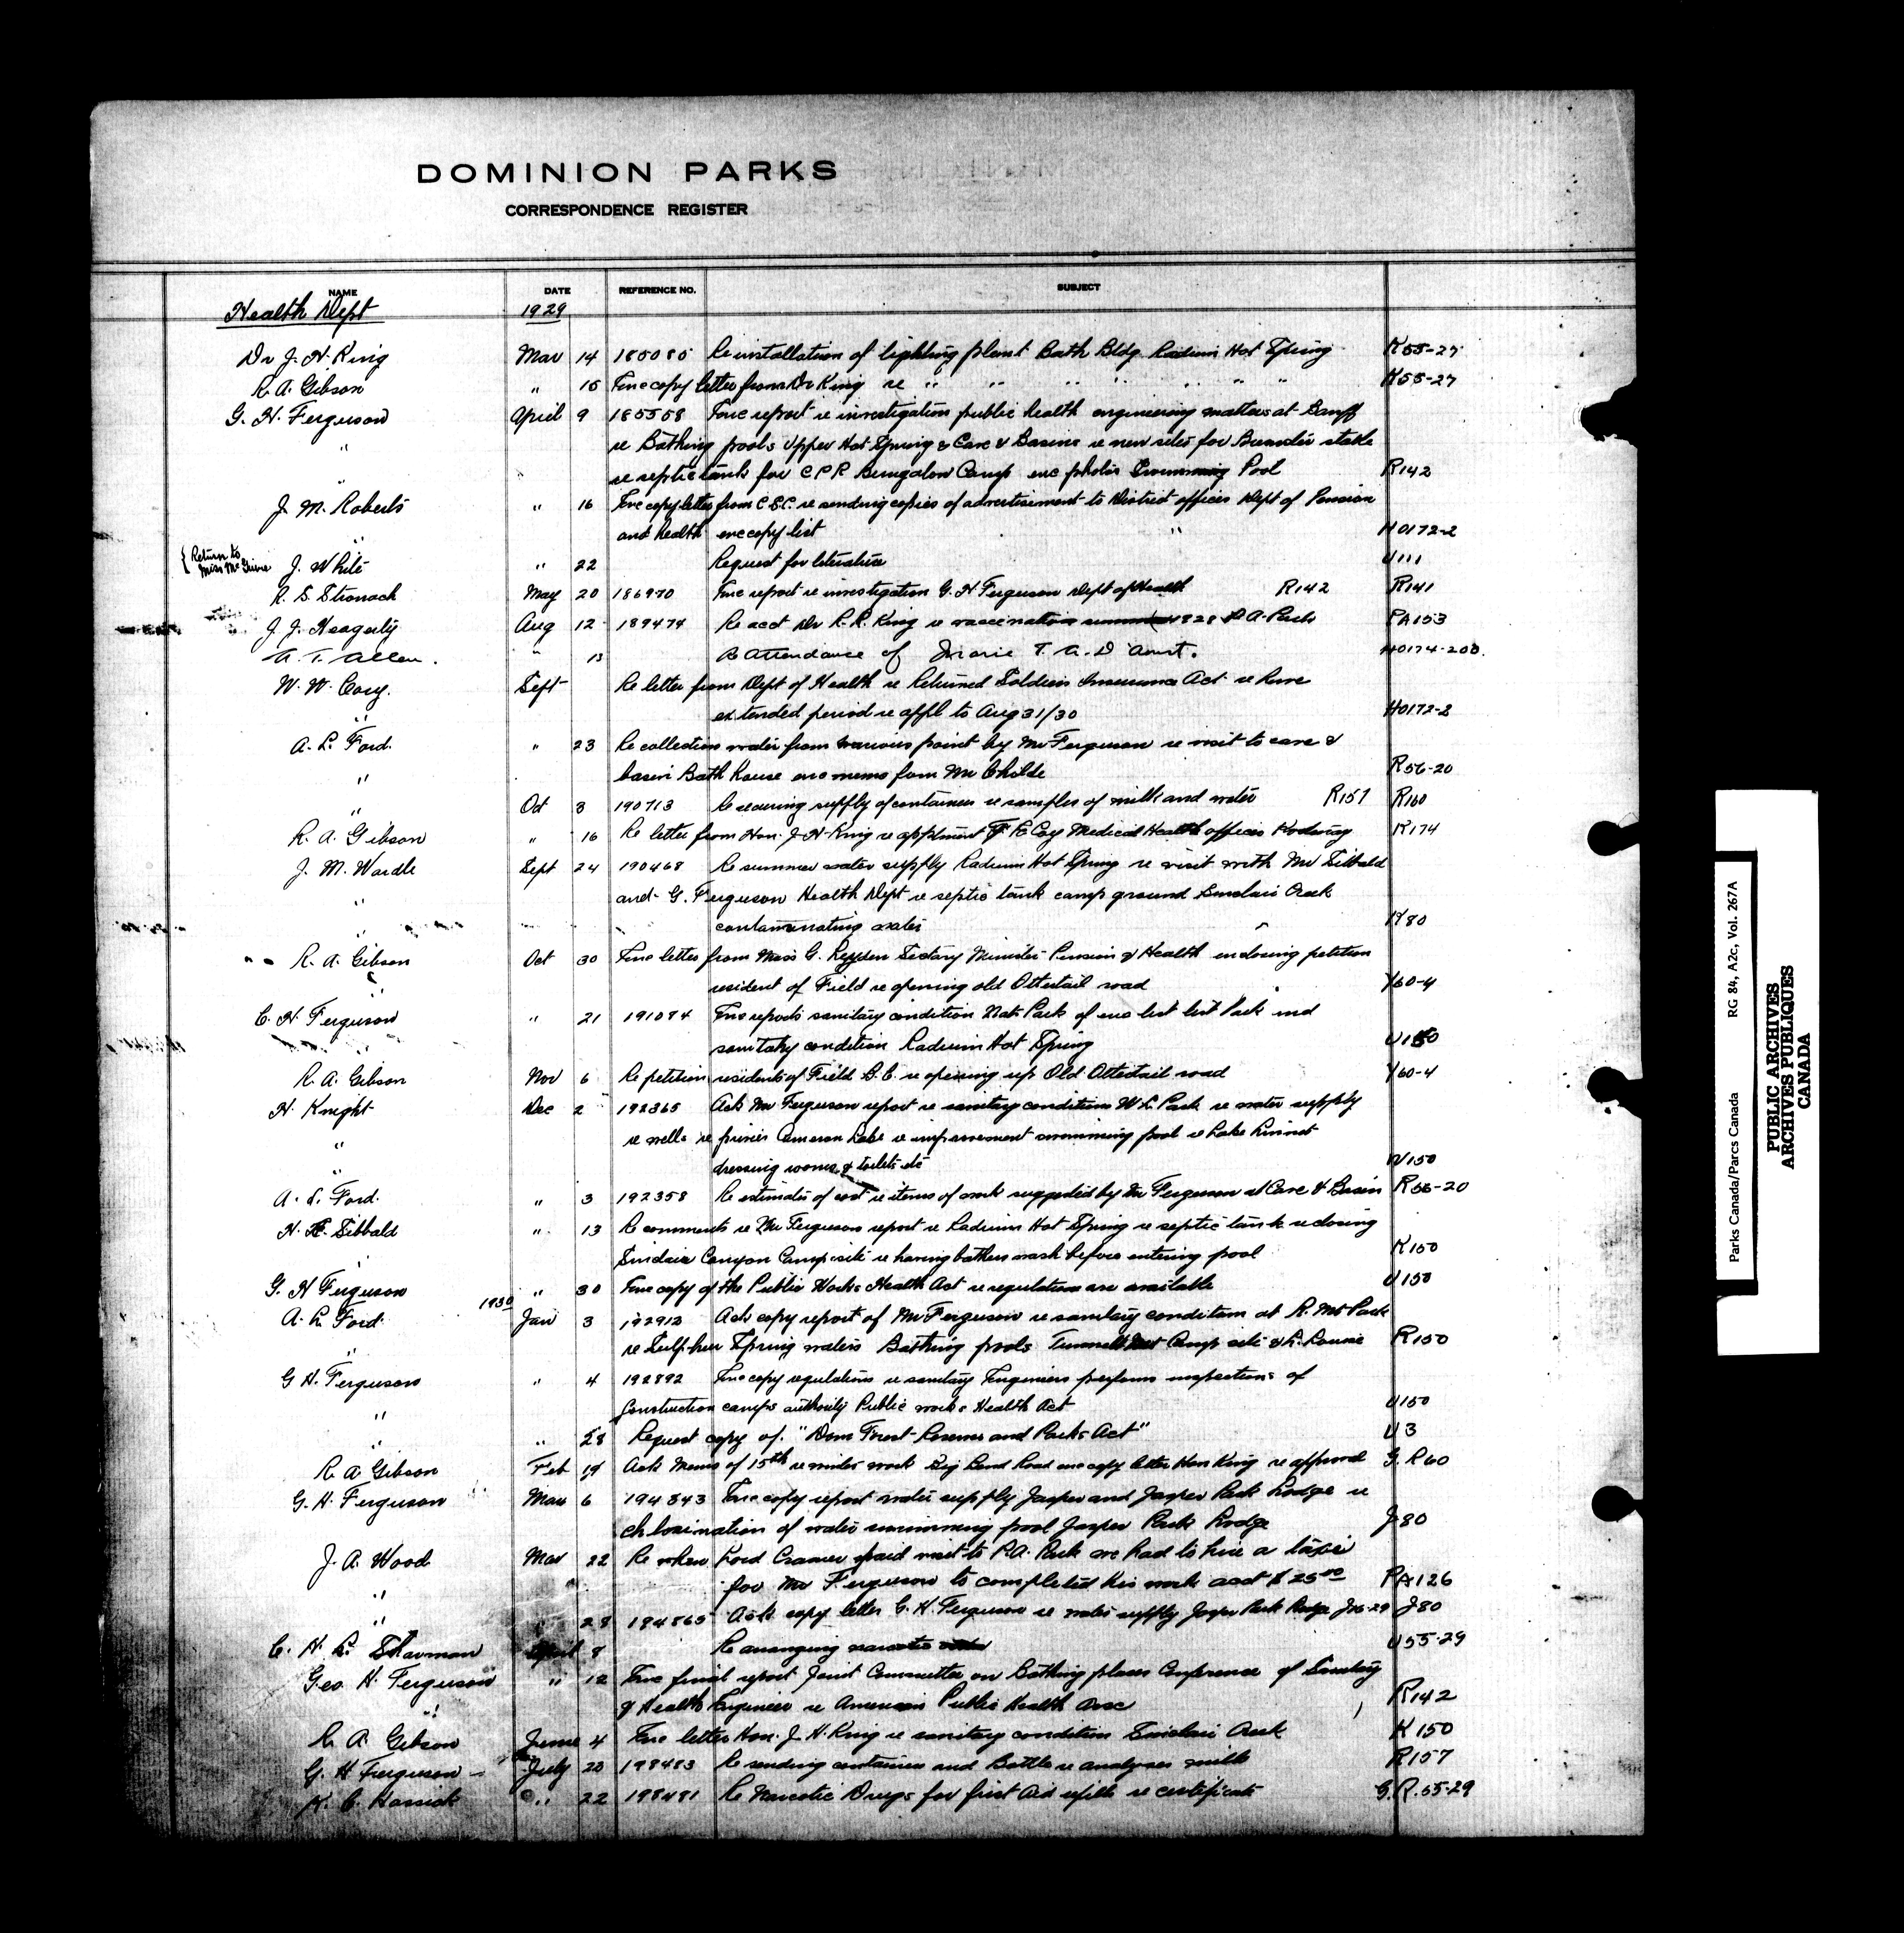 DOMINION PARKS
CORRESPONDENCE REGISTER
NAME DATE REFERENCE NO. SUBJECT
Health Dept 1929
Dr J. H. King Mar 14 185080 Re installation of lighting plant Bath Bldg Radium Hot Spring K55-27
R. A. Gibson " 15 Enc copy letter from Dr King re " " " " " " " K55-27
G. H. Ferguson April 9 185558 Enc report re investigation public health engineering matters at Banff
" re Bathing pools Upper Hot Spring & Cave & Basin re new sites for Brewster stable
" re septic tank for C P R Bungalow Camp enc photos Swimming Pool R142
J. M. Roberts " 16 Enc copy letter from C.S.C. re sending copies of advertisement to District offices Dept of Pension
" and health enc copy list " H0172-2
{ Return to
Miss McGuire J. White " 22 Request for literature U111
R. S. Stronach May 20 186970 Enc report re investigation G. H Ferguson Dept of Health R142 R141
J. J. Heagerty Aug 12 189474 Re acct Dr R. R. King re vaccination 1928 P A. Park PA153
A. T. Allen. " 13 Re Attendance of Marie T. A. D'Aoust. H0174-200.
W. W. Cory. Sept Re letter from Dept of Health re Returned Soldiers Insurance Act re
" extended period re appl to Aug 31/30 H0172-2
A. L. Ford. " 23 Re collection water from various point by Mr Ferguson re visit to cave &
" basin Bath house enc memo from Mr Childe R56-20
" Oct 3 190713 Re securing supply of containers re samples of milk and water R157 R160
R. A. Gibson " 16 Re letter from Hon. J. H. King re apptment F. E Coy Medical Health officer Kootenay K174
J. M. Wardle Sept 24 190468 Re summer water supply Radium Hot Spring re visit with Mr Sibbald
" and G. Ferguson Health Dept re septic tank camp ground Sinclair Creek
" contaminating water K80
R. A. Gibson Oct 30 Enc letter from Miss G. Sectary Minister Pension & Health enclosing petition
resident of Field re opening old Ottertail road Y60-4
G. H. Ferguson " 21 191094 Enc reports sanitary condition Nat Park of enc list list Park and
" sanitary condition Radium Hot Spring U150
R. A. Gibson Nov 6 Re petition residents of Field B.C. re opening up Old Ottertail road Y60-4
H. Knight Dec 2 192365 Ack Mr Ferguson report re sanitary conditions W L Park re water supply
" re wells re privies Cameron Lake re improvement swimming pool re Lake Linnet
" dressing rooms & toilets etc W150
A. L. Ford. " 3 192358 Re estimates of cost re items of work suggested by Mr Ferguson at Cave & Basin R56-20
H. E. Sibbald " 13 Re comments re Mr Ferguson report re Radium Hot Spring re septic tank re closing
" Sinclair Canyon Camp site re having bathers wash before entering pool K150
G. H Ferguson " 30 Enc copy of the Public Works Health Act re regulations are available U150
A. L Ford. 1930 Jan 3 192912 Ack copy report of Mr Ferguson re sanitary condition at R. Mts Park
" re Sulphur Spring waters Bathing pools Tunnell Mt Camp site & L. Louise R150
G H. Ferguson " 4 192892 Enc copy regulations re sanitary Engineers perform inspections of
" Construction camps authority Public works Health Act U150
" " 28 Request copy of. "Dom Forest Reserves and Parks Act" U3
R A Gibson Feb 19 Ack Memo of 15th re winter work Big Bend Road enc copy letter Hon King re approval G. R60
G. H. Ferguson Mar 6 194343 Enc copy report water supply Jasper and Jasper Park Lodge re
chlorination of water swimming pool Jasper Park Lodge J80
J. A. Wood Mar 22 Re when Lord paid visit to P.A. Park we had to hire a taxi
" for Mr Ferguson to completed his work acct $25 00 PA126
" " 28 194865 Ack copy letter G. H. Ferguson re water supply Jasper Park Lodge J16-29 J80
C. H. L. Sharman April 8 Re arranging narcotic U55-29
Geo. H. Ferguson " 12 Enc final report Joint Committee on Bathing places Conference of Sanitary
" & Health Engineer re American Public Health Assc R142
R. A. Gibson June 4 Enc letter Hon. J. H. King re sanitary condition Sinclair Creek K150
G. H Ferguson July 20 198483 Re sending containers and Bottle re analyses milk R157
K. C. " 22 198481 Re Narcotic Drugs for first Aid refills re certificate G.R.55-29
Parks Canada/Parcs Canada RG 84, A2c, Vol. 267A
PUBLIC ARCHIVES
ARCHIVES PUBLIQUES
CANADA